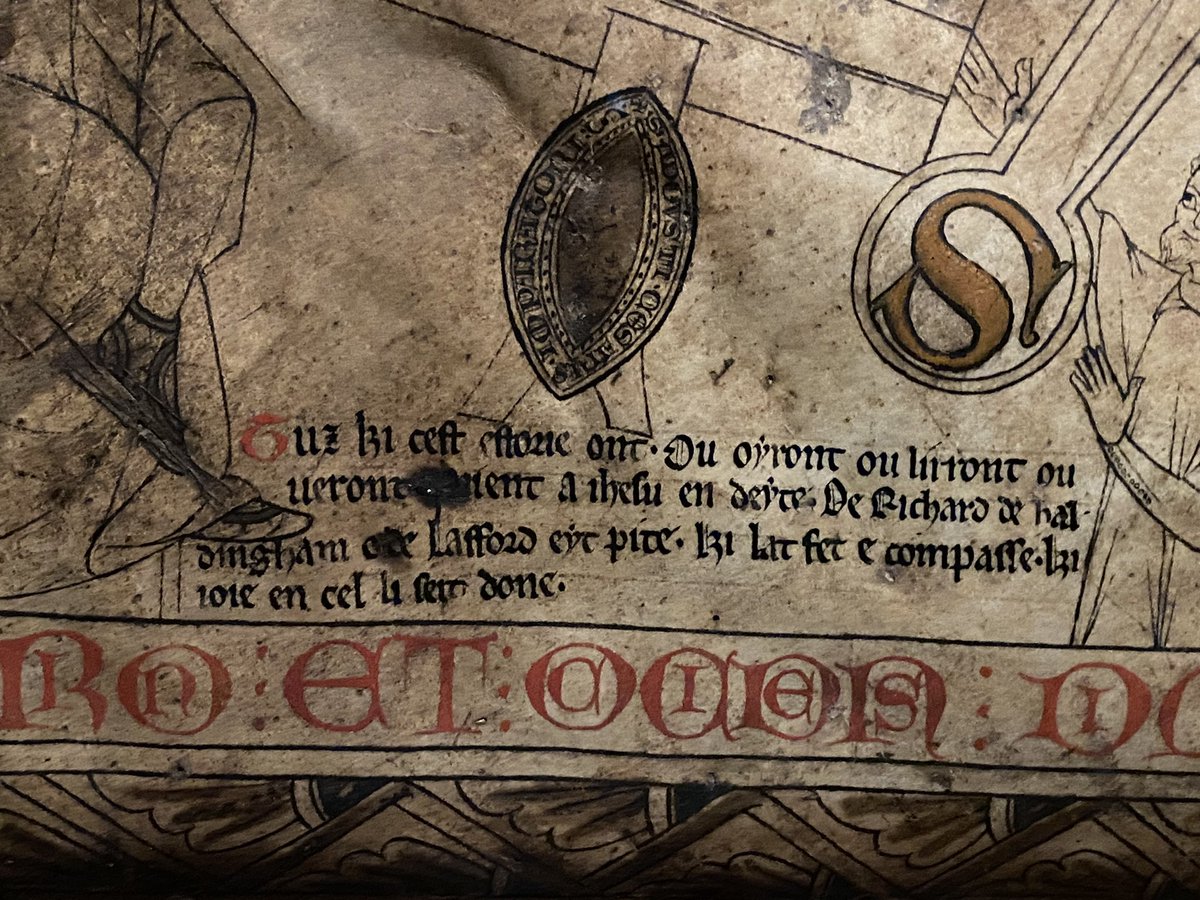 S
Tuz ki cest estorie ont. Ou oyront ou lirront ou
ueront prient a ihesu en deyte. De Richard de hal
dingham o de Lafford eyt pite. ki lat fet e compasse. ki
ioie en cel li seit done.
RION : ET : OCCIDENS : DI